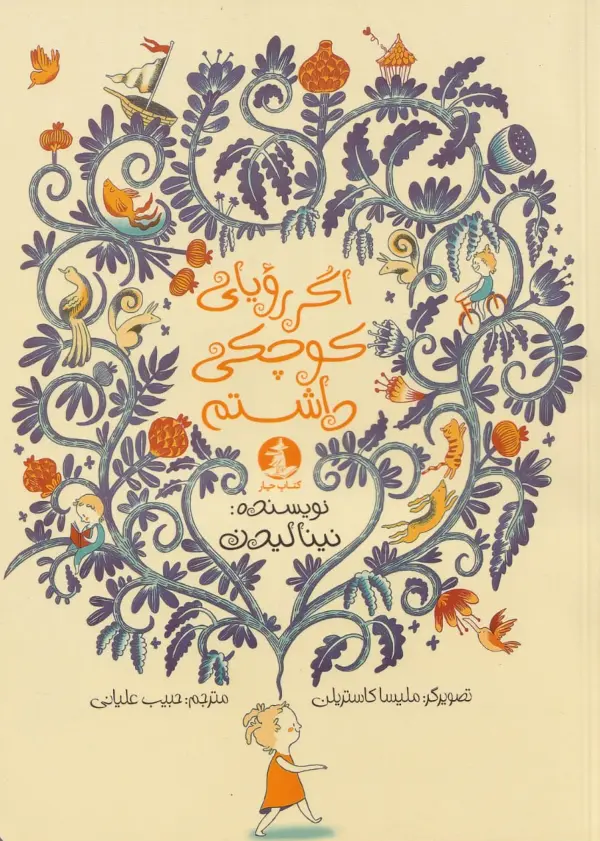 اگر رؤیای
کوچکی
داشتم
کتاب جیار
نویسنده:
نینا لیدن
تصویرگر: ملیسا کاستریلن
مترجم: حبیب علیانی